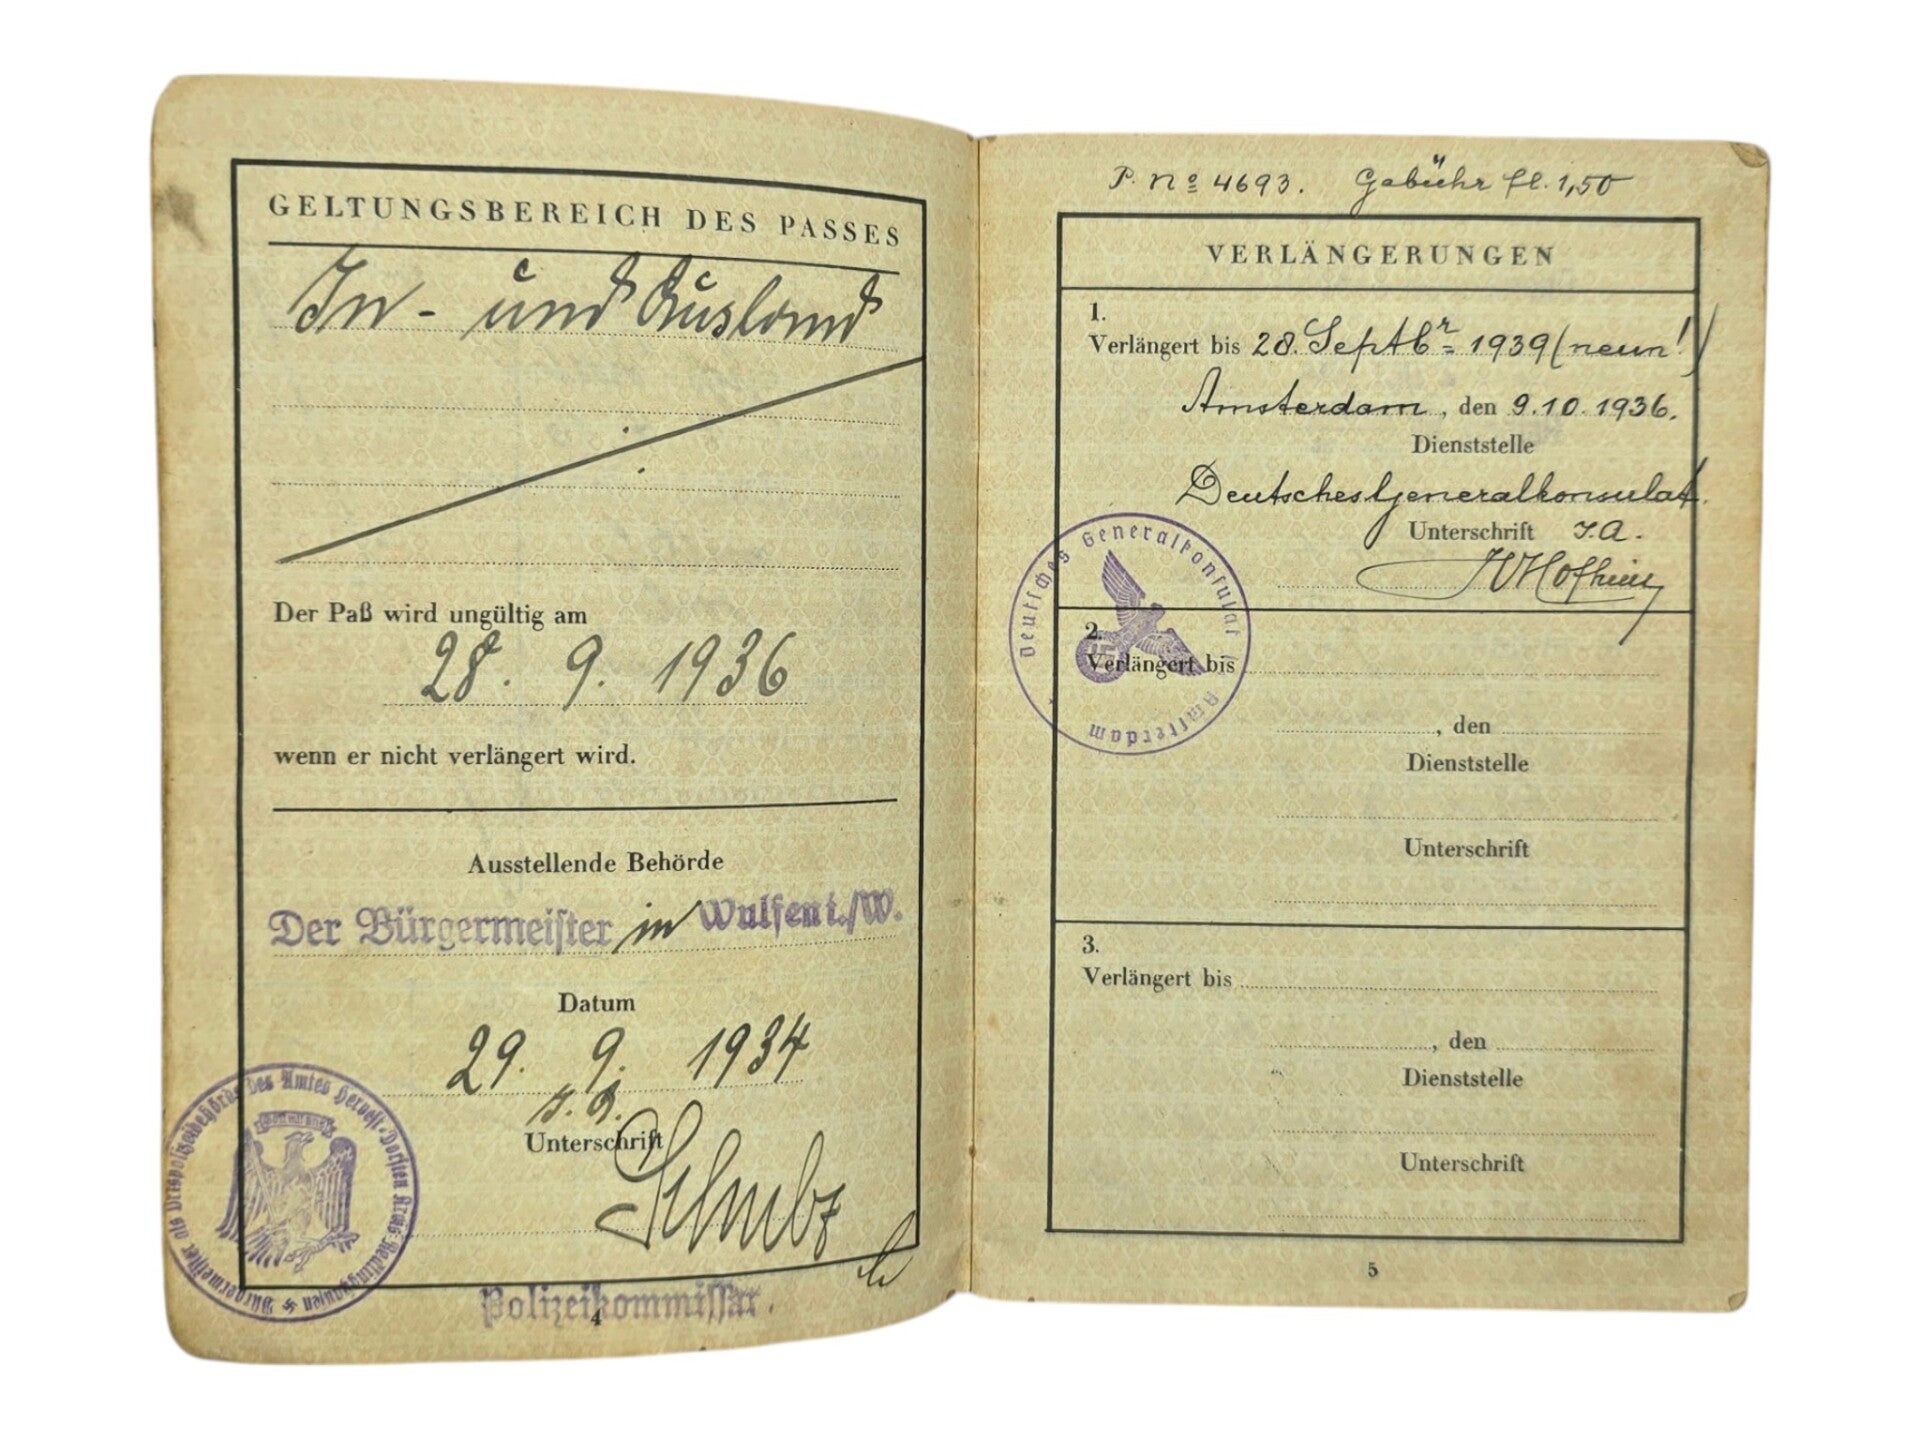 GELTUNGSBEREICH DES PASSES
In- und Ausland
Der Paß wird ungültig am
28. 9. 1936
wenn er nicht verlängert wird.
Ausstellende Behörde
Der Bürgermeister in Wulfen i./W.
Datum
29. 9. 1934
J. A.
Unterschrift
Bürgermeister als Ortspolizeibehörde des Amtes Hervest-Dorsten Kreis Recklinghausen
Polizeikommissar.
4
P. No 4693. Gebühr fl. 1,50
VERLÄNGERUNGEN
1.
Verlängert bis 28. Septbr 1939 (neun!)
Amsterdam, den 9.10.1936.
Dienststelle
Deutsches Generalkonsulat.
Unterschrift J.A.
Deutsches Generalkonsulat Amsterdam
2.
Verlängert bis
, den
Dienststelle
Unterschrift
3.
Verlängert bis
, den
Dienststelle
Unterschrift
5